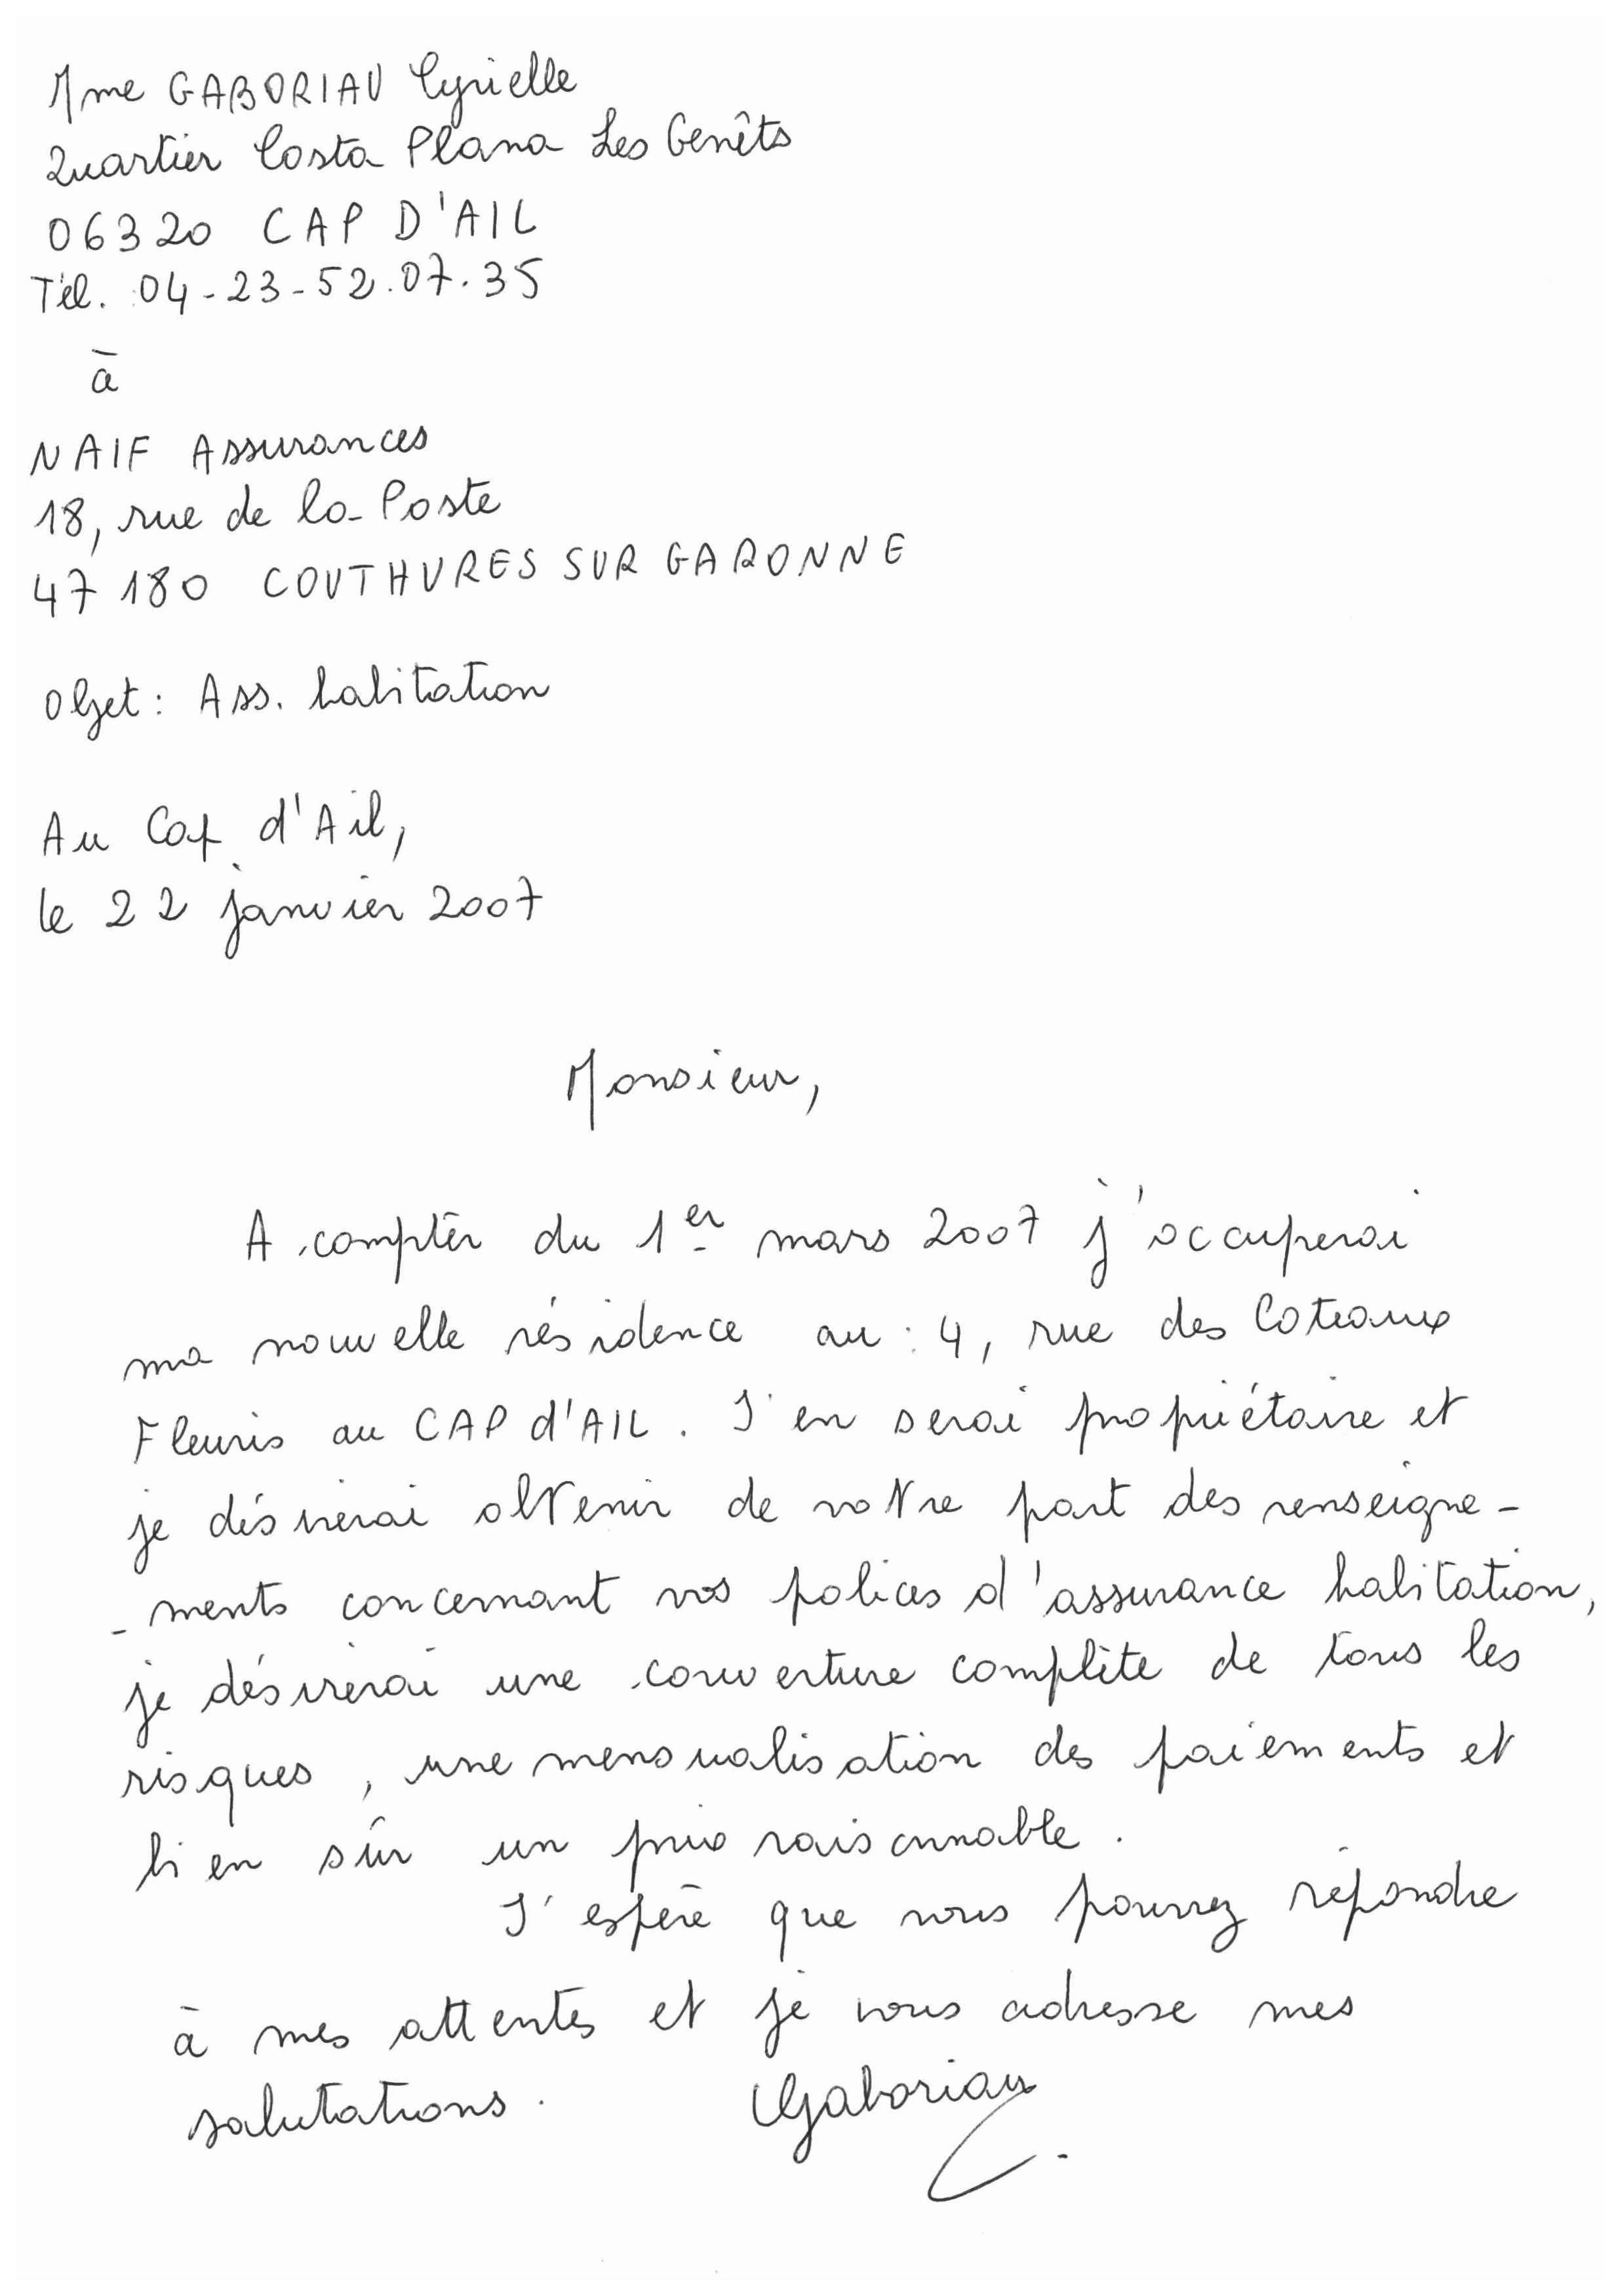 Mme GABORIAU Cyrielle
Quartier Costa Plana Les Genêts
06320 CAP D'AIL
Tél. 04-23-52.07.35
à
NAIF Assurances
18, rue de la Poste
47180 COUTHURES SUR GARONNE
Objet: Ass. habitation
Au Cap d'Ail,
le 22 janvier 2007
Monsieur,
A compter du 1er mars 2007 j'occuperai
ma nouvelle résidence au : 4, rue des Coteaux
Fleuris au CAP d'AIL. J'en serai propriétaire et
je désirerai obtenir de votre part des renseigne-
-ments concernant vos polices d'assurance habitation,
je désirerai une couverture complète de tous les
risques, une mensualisation des paiements et
bien sûr un prix raisonnable.
J'espère que vous pourrez répondre
à mes attentes et je vous adresse mes
salutations. CGaboriau